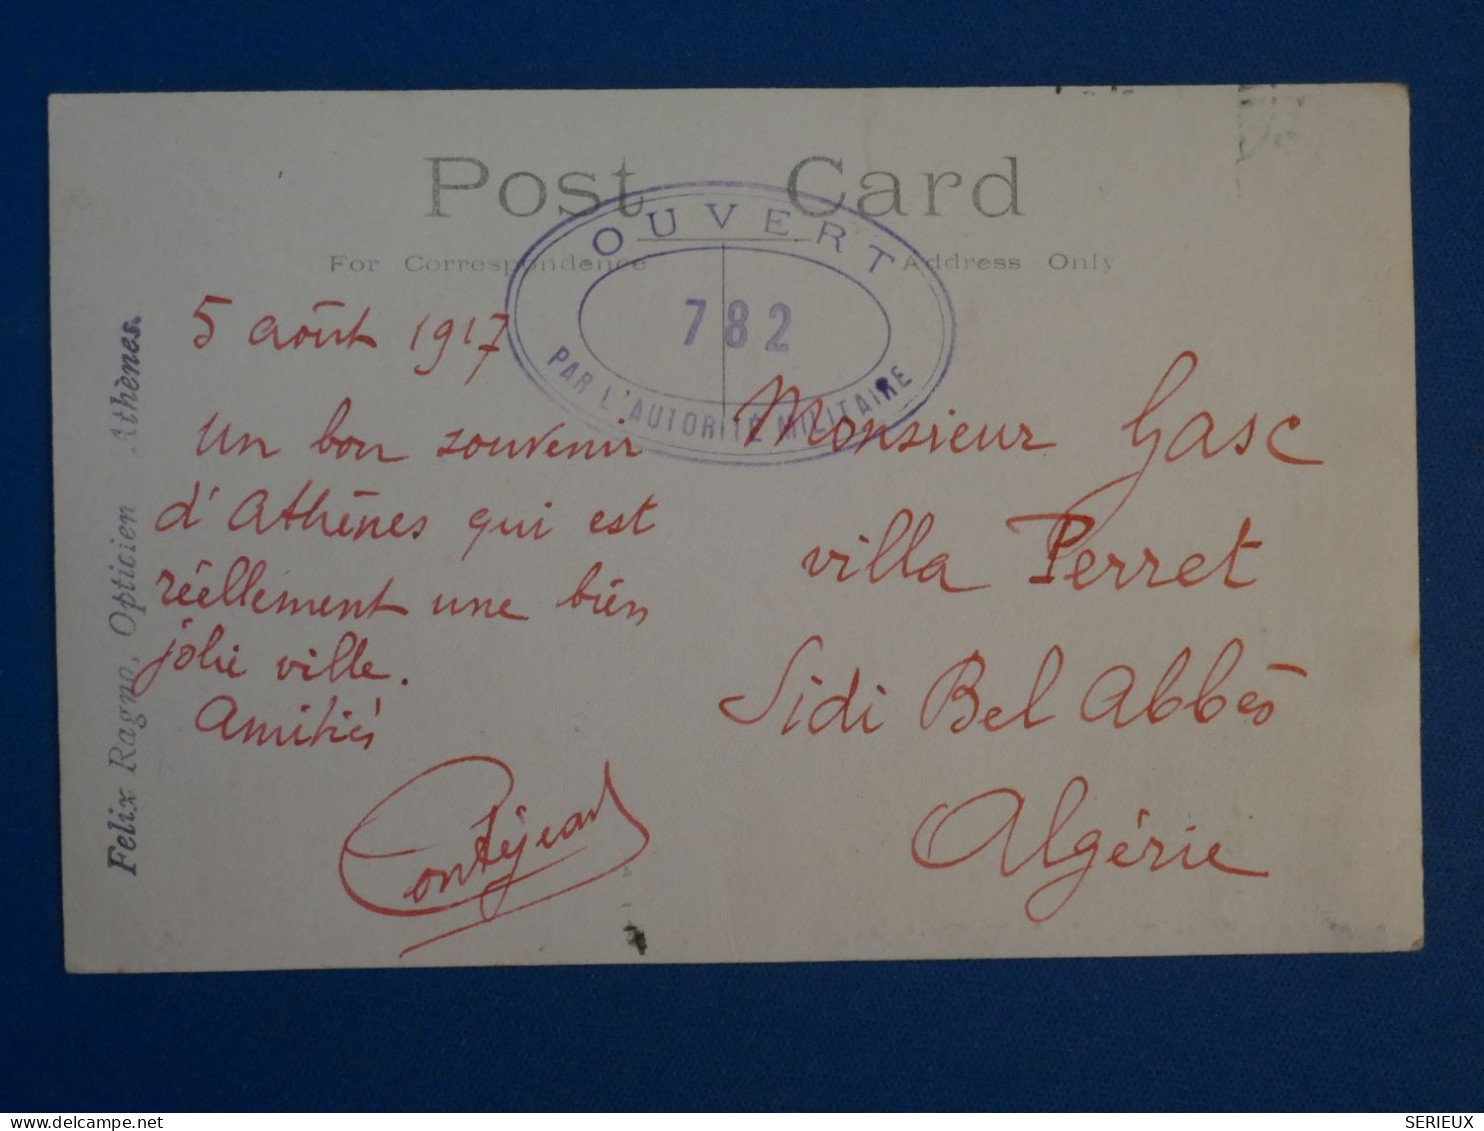 Post Card
For Correspondence
Address Only
OUVERT
782
PAR L'AUTORITÉ MILITAIRE
Felix Ragno, Opticien Athènes.
5 août 1917
Un bon souvenir
d'Athènes qui est
réellement une bien
jolie ville.
Amitiés
Contéjean
Monsieur Gasc
villa Perret
Sidi Bel Abbès
Algérie
SERIEUX